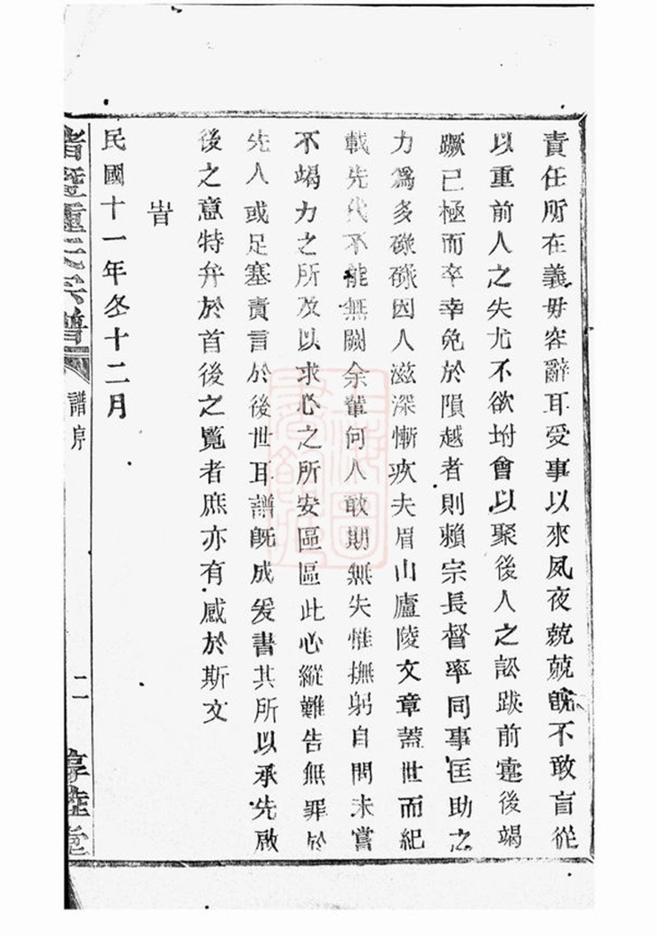 責任所在義毋容辭耳受事以來夙夜兢兢旣不敢盲從
以重前人之失尤不欲坿會以聚後人之訟跋前疐後竭
蹶已極而卒幸免於隕越者則賴宗長督率同事匡助之
力爲多碌碌因人滋深慚疚夫眉山廬陵文章蓋世而紀
載先代不能無闕余輩何人敢期無失惟撫躬自問未嘗
不竭力之所及以求心之所安區區此心縱難告無罪於
先人或足塞責言於後世耳譜旣成爰書其所以承先啟
後之意特弁於首後之覧者庶亦有感於斯文
旹
民國十一年冬十二月
諸曁 氏宗譜
譜序
二
惇睦堂